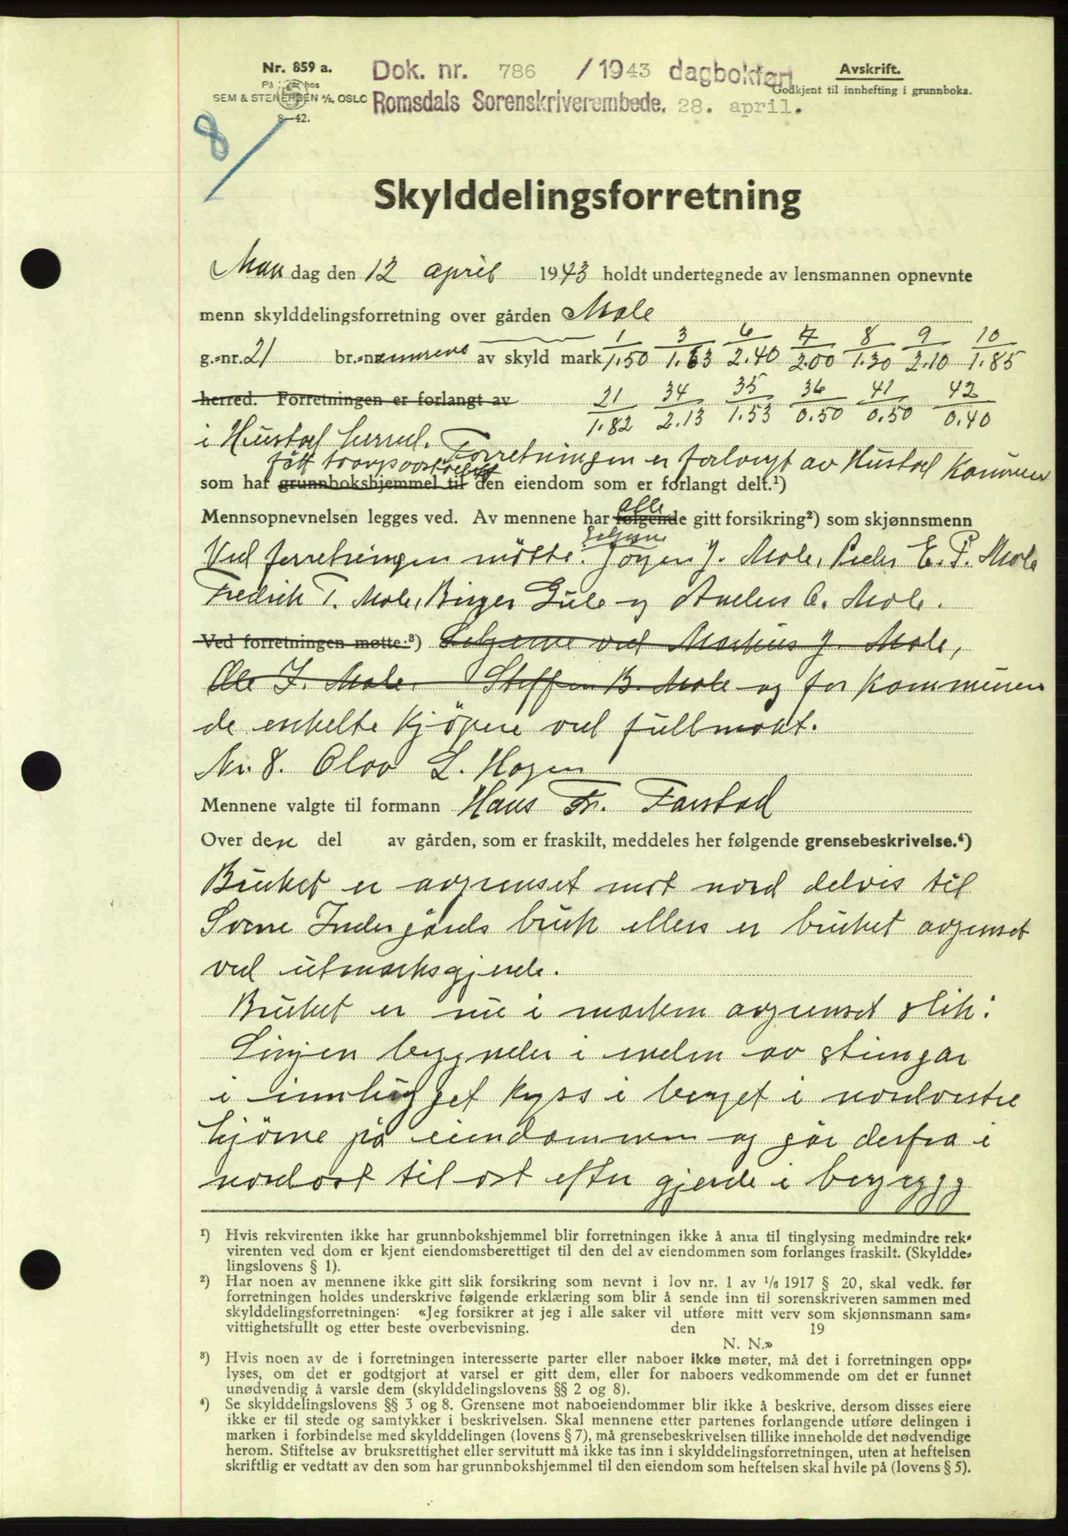 Nr. 859 a.
På hos
SEM & STENERSEN A/S, OSLO
8—42.
Dok. nr. 786 /1943 dagbokført
Romsdals Sorenskriverembede. 28. april.
Avskrift.
Godkjent til innhefting i grunnboka.
8/
Skylddelingsforretning
Man dag den 12 april 1943 holdt undertegnede av lensmannen opnevnte
menn skylddelingsforretning over gården Male
g.-nr. 21 br.-numrene av skyld mark 1/1.50 3/1.63 6/2.40 7/2.00 8/1.30 9/2.10 10/1.85
herred. Forretningen er forlangt av 21/1.82 34/2.13 35/1.53 36/0.50 41/0.50 42/0.40
i Hustad herred. Forretningen er forlangt av Hustad Kommune
som har fått grunnbokshjemmel til den eiendom som er forlangt delt.¹)
Mennsopnevnelsen legges ved. Av mennene har alle følgende gitt forsikring²) som skjønnsmenn
Ved forretningen møtte: Selgerne Jørgen J. Male, Peder E. P. Male
Fredrik T. Male, Birger Gule og Anders O. Male.
Ved forretningen møtte:³) Selgerne ved Markus J. Male,
Ole I. Male. Steffen B. Male og for Kommunen
de enkelte kjöpere ved fullmakt.
Nr. 8. Olav L. Hagen
Mennene valgte til formann Hans Fr. Farstad
Over dene del av gården, som er fraskilt, meddeles her følgende grensebeskrivelse.⁴)
Bruket er avgrenset mot nord delvis til
Sverre Indergårds bruk ellers er bruket avgrenset
ved utmarksgjerde.
Bruket er nu i marken avgrenset slik:
Linjen begynder i enden av stengar
i innhugget kryss i berget i nordvestre
hjørne på eiendommen og går derfra i
nordost til ost efter gjerde i bergrygg
¹) Hvis rekvirenten ikke har grunnbokshjemmel blir forretningen ikke å anta til tinglysing medmindre rek-
virenten ved dom er kjent eiendomsberettiget til den del av eiendommen som forlanges fraskilt. (Skyldde-
lingslovens § 1).
²) Har noen av mennene ikke gitt slik forsikring som nevnt i lov nr. 1 av 1/6 1917 § 20, skal vedk. før
forretningen holdes underskrive følgende erklæring som blir å sende inn til sorenskriveren sammen med
skylddelingsforretningen: «Jeg forsikrer at jeg i alle saker vil utføre mitt verv som skjønnsmann sam-
vittighetsfullt og etter beste overbevisning. den 19
N. N.»
³) Hvis noen av de i forretningen interesserte parter eller naboer ikke møter, må det i forretningen opp-
lyses, om det er godtgjort at varsel er gitt dem, eller for naboers vedkommende om det er funnet
unødvendig å varsle dem (skylddelingslovens §§ 2 og 8).
⁴) Se skylddelingslovens §§ 3 og 8. Grensene mot naboeiendommer blir ikke å beskrive, dersom disses eiere
ikke er til stede og samtykker i beskrivelsen. Skal mennene etter partenes forlangende utføre delingen i
marken i forbindelse med skylddelingen (lovens § 7), må grensebeskrivelsen tillike inneholde det nødvendige
herom. Stiftelse av bruksrettighet eller servitutt må ikke tas inn i skylddelingsforretningen, uten at heftelsen
skriftlig er vedtatt av den som har grunnbokshjemmel til den eiendom som heftelsen skal hvile på (lovens § 5).